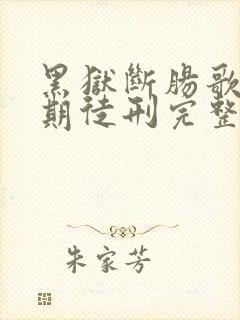 黑獄斷腸歌
期徒刑完整
朱家芳